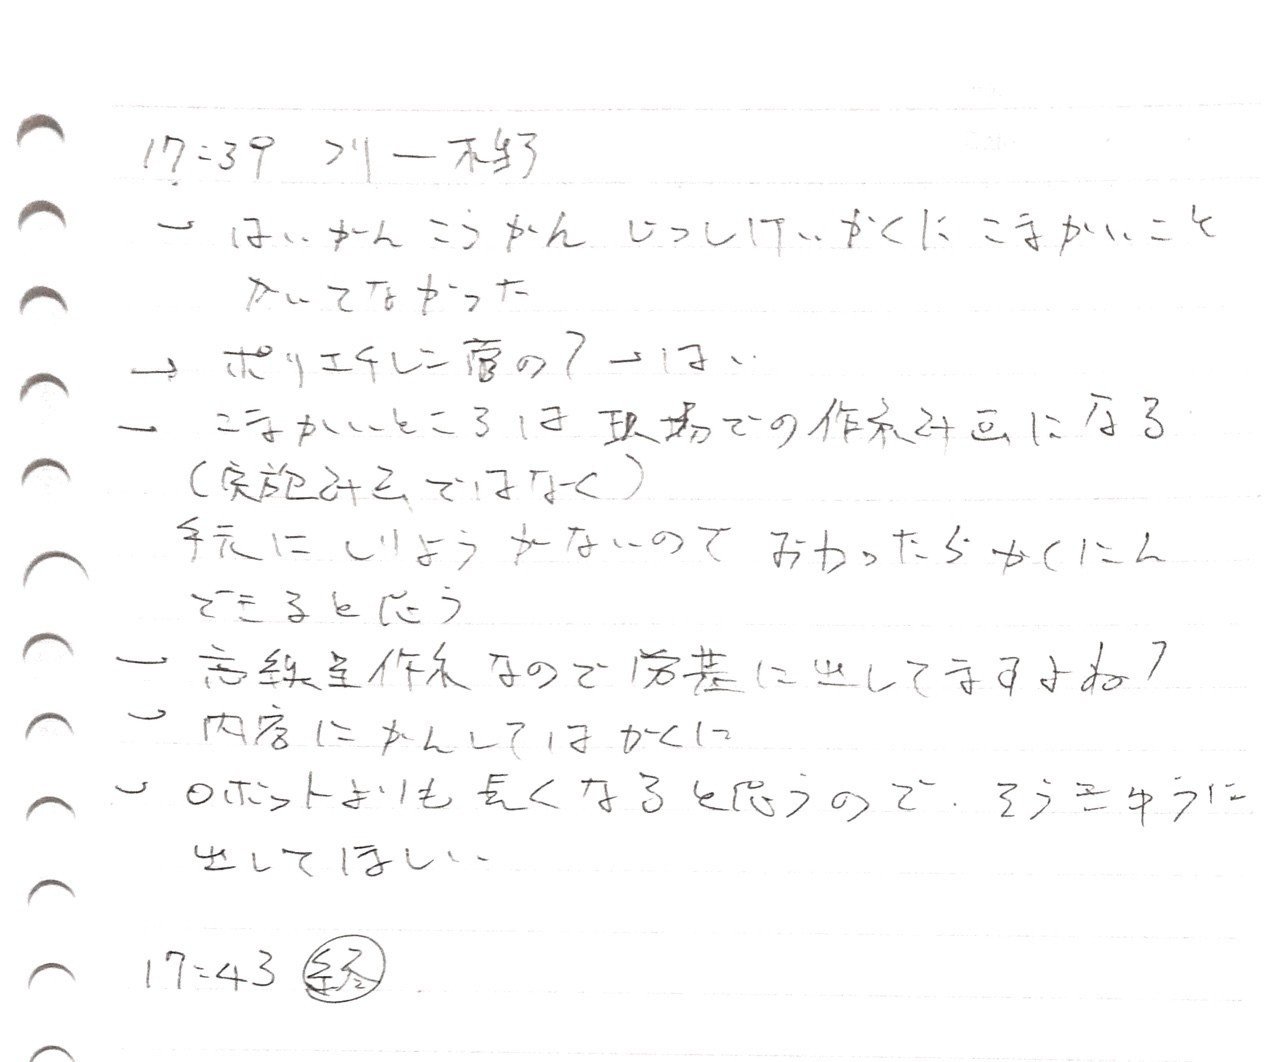 17:39 フリー木野
→ はいかんこうかん じっしけいかくにこまかいこと
かいてなかった
→ ポリエチレン管の? → はい
→ こまかいところは現場での作業計画になる
(実施計画ではなく)
手元にしりょうがないので おわったらかくにん
できると思う
→ 高線量作業なので労基に出してますよね?
→ 内容にかんしてはかくに
→ ロボットよりも長くなると思うので、そうきゅうに
出してほしい
17:43 終